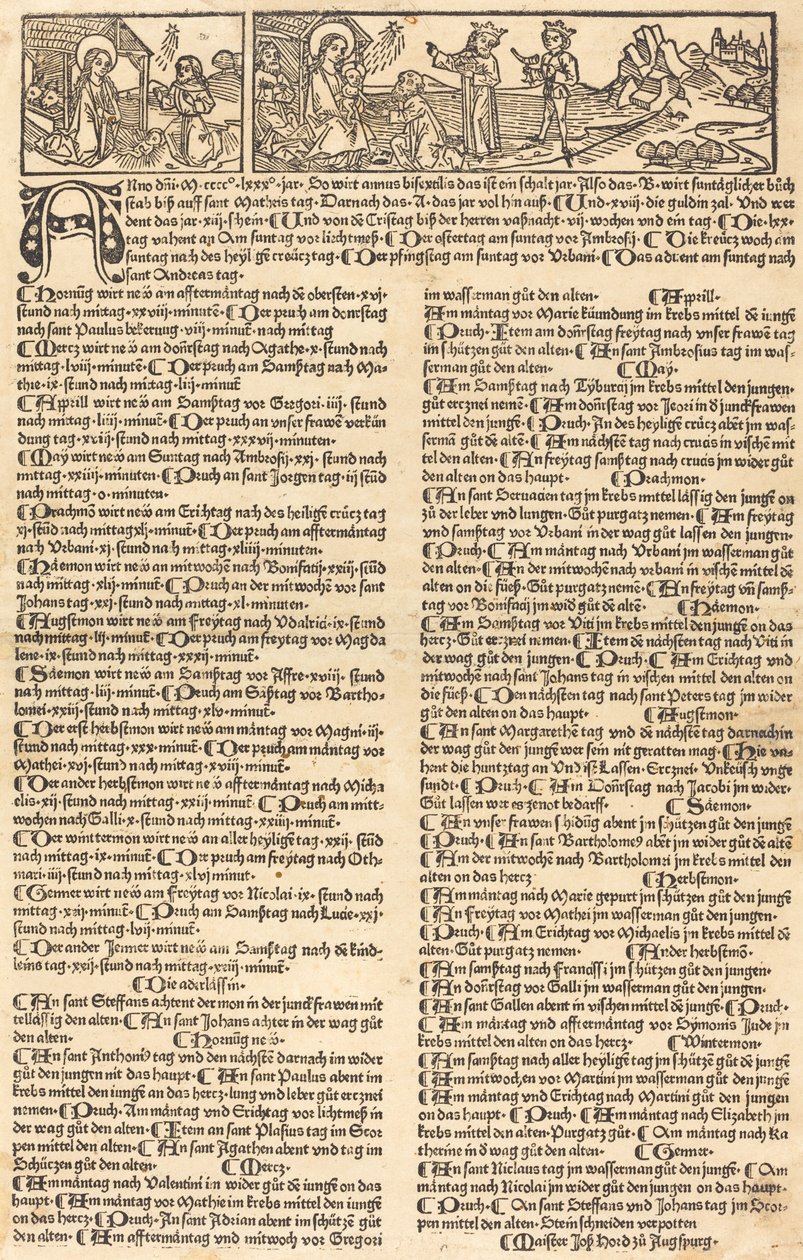 Anno dñi·M·cccc°·lxxx°·jar· So wirt annus bisextilis das ist ein schalt jar· Also das·B·wirt suntäglicher bůch
stab biß auff sant Matheis tag· Darnach das·A·das jar vol hin auß· Und·xviii·die guldin zal· Vnd wer
dent das jar·xiii·schein· Und von dē Cristag biß der herren vaßnacht·vij·wochen vnd ein tag· Die·lxx·
tag vahent an Am suntag vor liechtmeß· Der ostertag am suntag vor Ambrosij· Die kreücz woch am
suntag nach des heyligē creücz tag· Der pfingstag am suntag vor Vrbani· Das aduent am suntag nach
sant Andreas tag·
Hornūg wirt new am afftermäntag nach dē obersten·xvj·
stund nach mittag·xxviij·minutē· Der pruch am donrstag
nach sant Paulus bekerung·viij·minut· nach mittag
Mercz wirt new am donrstag nach Agathe·x·stund nach
mittag·lviij·minutē· Der pruch am Samßtag nach Ma-
thie·ix·stund nach mittag·liij·minut
Apprill wirt new am Samßtag vor Gregori·iiij·stund
nach mittag·liiij·minut· Der pruch an vnser frawē verkün
dung tag·xviij·stund nach mittag·xxxvij·minuten·
May wirt new am Suntag nach Ambrosij·xxj·stund nach
mittag·xxiiij·minuten· Pruch an sant Jorgen tag·iij stūd
nach mittag·o·minuten·
Prachmō wirt new am Erichtag nach des heiligē crücz tag
xj·stūd nach mittag xlj·minut· Der pruch am afftermäntag
nach Vrbani·xj·stund nach mittag·xliiij·minuten·
Häemon wirt new an mitwochē nach Bonifacij·xxiij·stūd
nach mittag·xlij·minut· Pruch an der mitwochē vor sant
Johans tag·xxj·stund nach mittag·xl·minuten·
Augstmon wirt new am Freytag nach Vdalrici·ix·stund
nach mittag·lij·minut· Der pruch am freytag vor Magda
lene·ix·stund nach mittag·xxxij·minut·
Säemon wirt new am Samßtag vor Affre·xviij·stund
nach mittag·liij·minut· Pruch am Sāßtag vor Bartho-
lomei·xxiij·stund nach mittag·xlv·minut·
Der erst herbstmon wirt new am mäntag vor Magni·iij·
stund nach mittag·xxx·minut· Der pruch am mäntag vor
Mathei·xvj·stund nach mittag·xviij·minut·
Der ander herbstmon wirt new afftermäntag nach Micha
elis·xij·stund nach mittag·xxiij·minut· Pruch am mitt-
wochen nach Galli·x·stund nach mittag·xxiiij·minut·
Der winttermon wirt new an aller heyligē tag·xxij·stūd
nach mittag·ix·minut· Der pruch am freytag nach Oth-
mari·iiij·stund nach mittag·xlvj minut·
Genner wirt new am Freytag vor Nicolai·ix·stund nach
mittag·xxij·minut· Pruch am Samßtag nach Lucie·xxj·
stund nach mittag·lvij·minut·
Der ander Jenner wirt new am Samßtag nach dē kind-
leins tag·xxij·stund nach mittag·xxiij·minut·
Die aderlässin·
An sant Steffans achtent der mon in der junckfrawen mit
tellässig den alten· An sant Johans achter in der wag gůt
den alten· Hornūg new·
An sant Anthonij tag vnd den nächstē darnach im wider
gůt den jungen nit das haupt· An sant Paulus abent im
krebs mittel den iungē an das hercz·lung vnd leber gůt ercznei
nemen· Pruch· Am mäntag vnd Erichtag vor lichtmeß in
der wag gůt den alten· Item an sant Plasius tag im Scor
pen mittel den alten· An sant Agathen abent vnd tag im
Schüczen gůt den alten· Mercz·
Am mäntag nach Valentini im wider gůt dē iungē on das
haupt· Am mäntag vor Mathie im krebs mittel den iungē
on das hercz· Pruch· An sant Adrian abent im schützē gůt
den alten· Am afftermäntag und mitwoch vor Gregori
im wasserman gůt den alten· Apprill·
Am mäntag vor Marie kúundung im krebs mittel dē iungē
Pruch· Item am donrstag freytag nach vnser frawē tag
im schützen gůt den alten· An sant Ambrosius tag im was-
serman gůt den alten· May·
Am Samßtag nach Tyburcij im krebs mittel den jungen·
gůt ercznei nemē· Am donrstag vor Jeori in d junckfrawen
mittel den jungē· Pruch· An des heyligē crücz abēt im was-
sermā gůt dē altē· Am nächstē tag nach crucis in vischē mit
tel den alten· An freytag samßtag nach crucis im wider gůt
den alten on das haupt· Prachmon·
An sant Seruacien tag im krebs mittel lässig den jungē on
zů der leber vnd lungen· Gůt purgatz nemen· Am freytag
vnd samßtag vor Vrbani in der wag gůt lassen den jungen·
Pruch· Am mäntag nach Vrbani jm wasserman gůt
den alten· An der mitwochē nach vrbani in vischē mittel dē
alten on die füeß· Gůt purgatz nemē· An freytag vñ samß-
tag vor Bonifacij jm wid gůt dē altē· Häemon·
Am Samßtag vor Viti jm krebs mittel den jungē on das
hercz· Gůt ercznei nemen· Item dē nächsten tag nach Viti in
der wag gůt den jungen· Pruch· Am Erichtag vnd
mitwochē nach sant Johans tag in vischen mittel den alten on
die füeß· Den nächsten tag nach sant Peters tag jm wider
gůt den alten on das haupt· Augstmon·
An sant Margarethē tag vnd dē nächstē tag darnach in
der wag gůt den jungē wer sein nit geratten mag· Hie va-
hent die huntztag an Vnd ist Lassen· Ercznei· Vnkeüsch vnge
sundt· Pruch· Am Donrstag nach Jacobi jm wider·
Gůt lassen wer es ze not bedarff· Säemon·
An vnser frawen schidūg abent jm schützen gůt den jungē
Pruch· An sant Bartholomeÿ abēt jm wider gůt dē altē
Am der mitwochē nach Bartholomei jm krebs mittel den
alten on das hercz Herbstmon·
Am mäntag nach Marie gepurt jm schützen gůt den jungē
An Freytag vor Mathei jm wasserman gůt den jungen·
Pruch· Am Erichtag vor Michaelis jm krebs mittel dē
alten· Gůt purgatz nemen· Ander herbstmō·
Am samßtag nach Francissi jm schützen gůt den jungen·
An donrstag vor Galli jm wasserman gůt den jungen·
An sant Gallen abent in vischen mittel dē jungē· Pruch·
Am mäntag vnd afftermäntag vor Symonis Jude jm
krebs mittel den alten on das hercz· Wintermon·
Am samßtag nach aller heyligē tag jm schützē gůt dē jungē
Am mitwochen vor Martini jm wasserman gůt den jungē
Am mäntag vnd Erichtag nach Martini gůt den jungen
on das haupt· Pruch· Am mäntag nach Elizabeth jm
krebs mittel den alten· Purgatz gůt· Am mäntag nach Ka
therine in d wag gůt den alten· Genner·
An sant Niclaus tag jm wasserman gůt den jungē· Am
mäntag nach Nicolai jm wider gůt den jungen on das haupt·
Pruch· An sant Steffans vnd Johans tag jm Scor-
pen mittel den alten· Stein schneiden verpotten
Maister Joß Hord zů Augspurg·